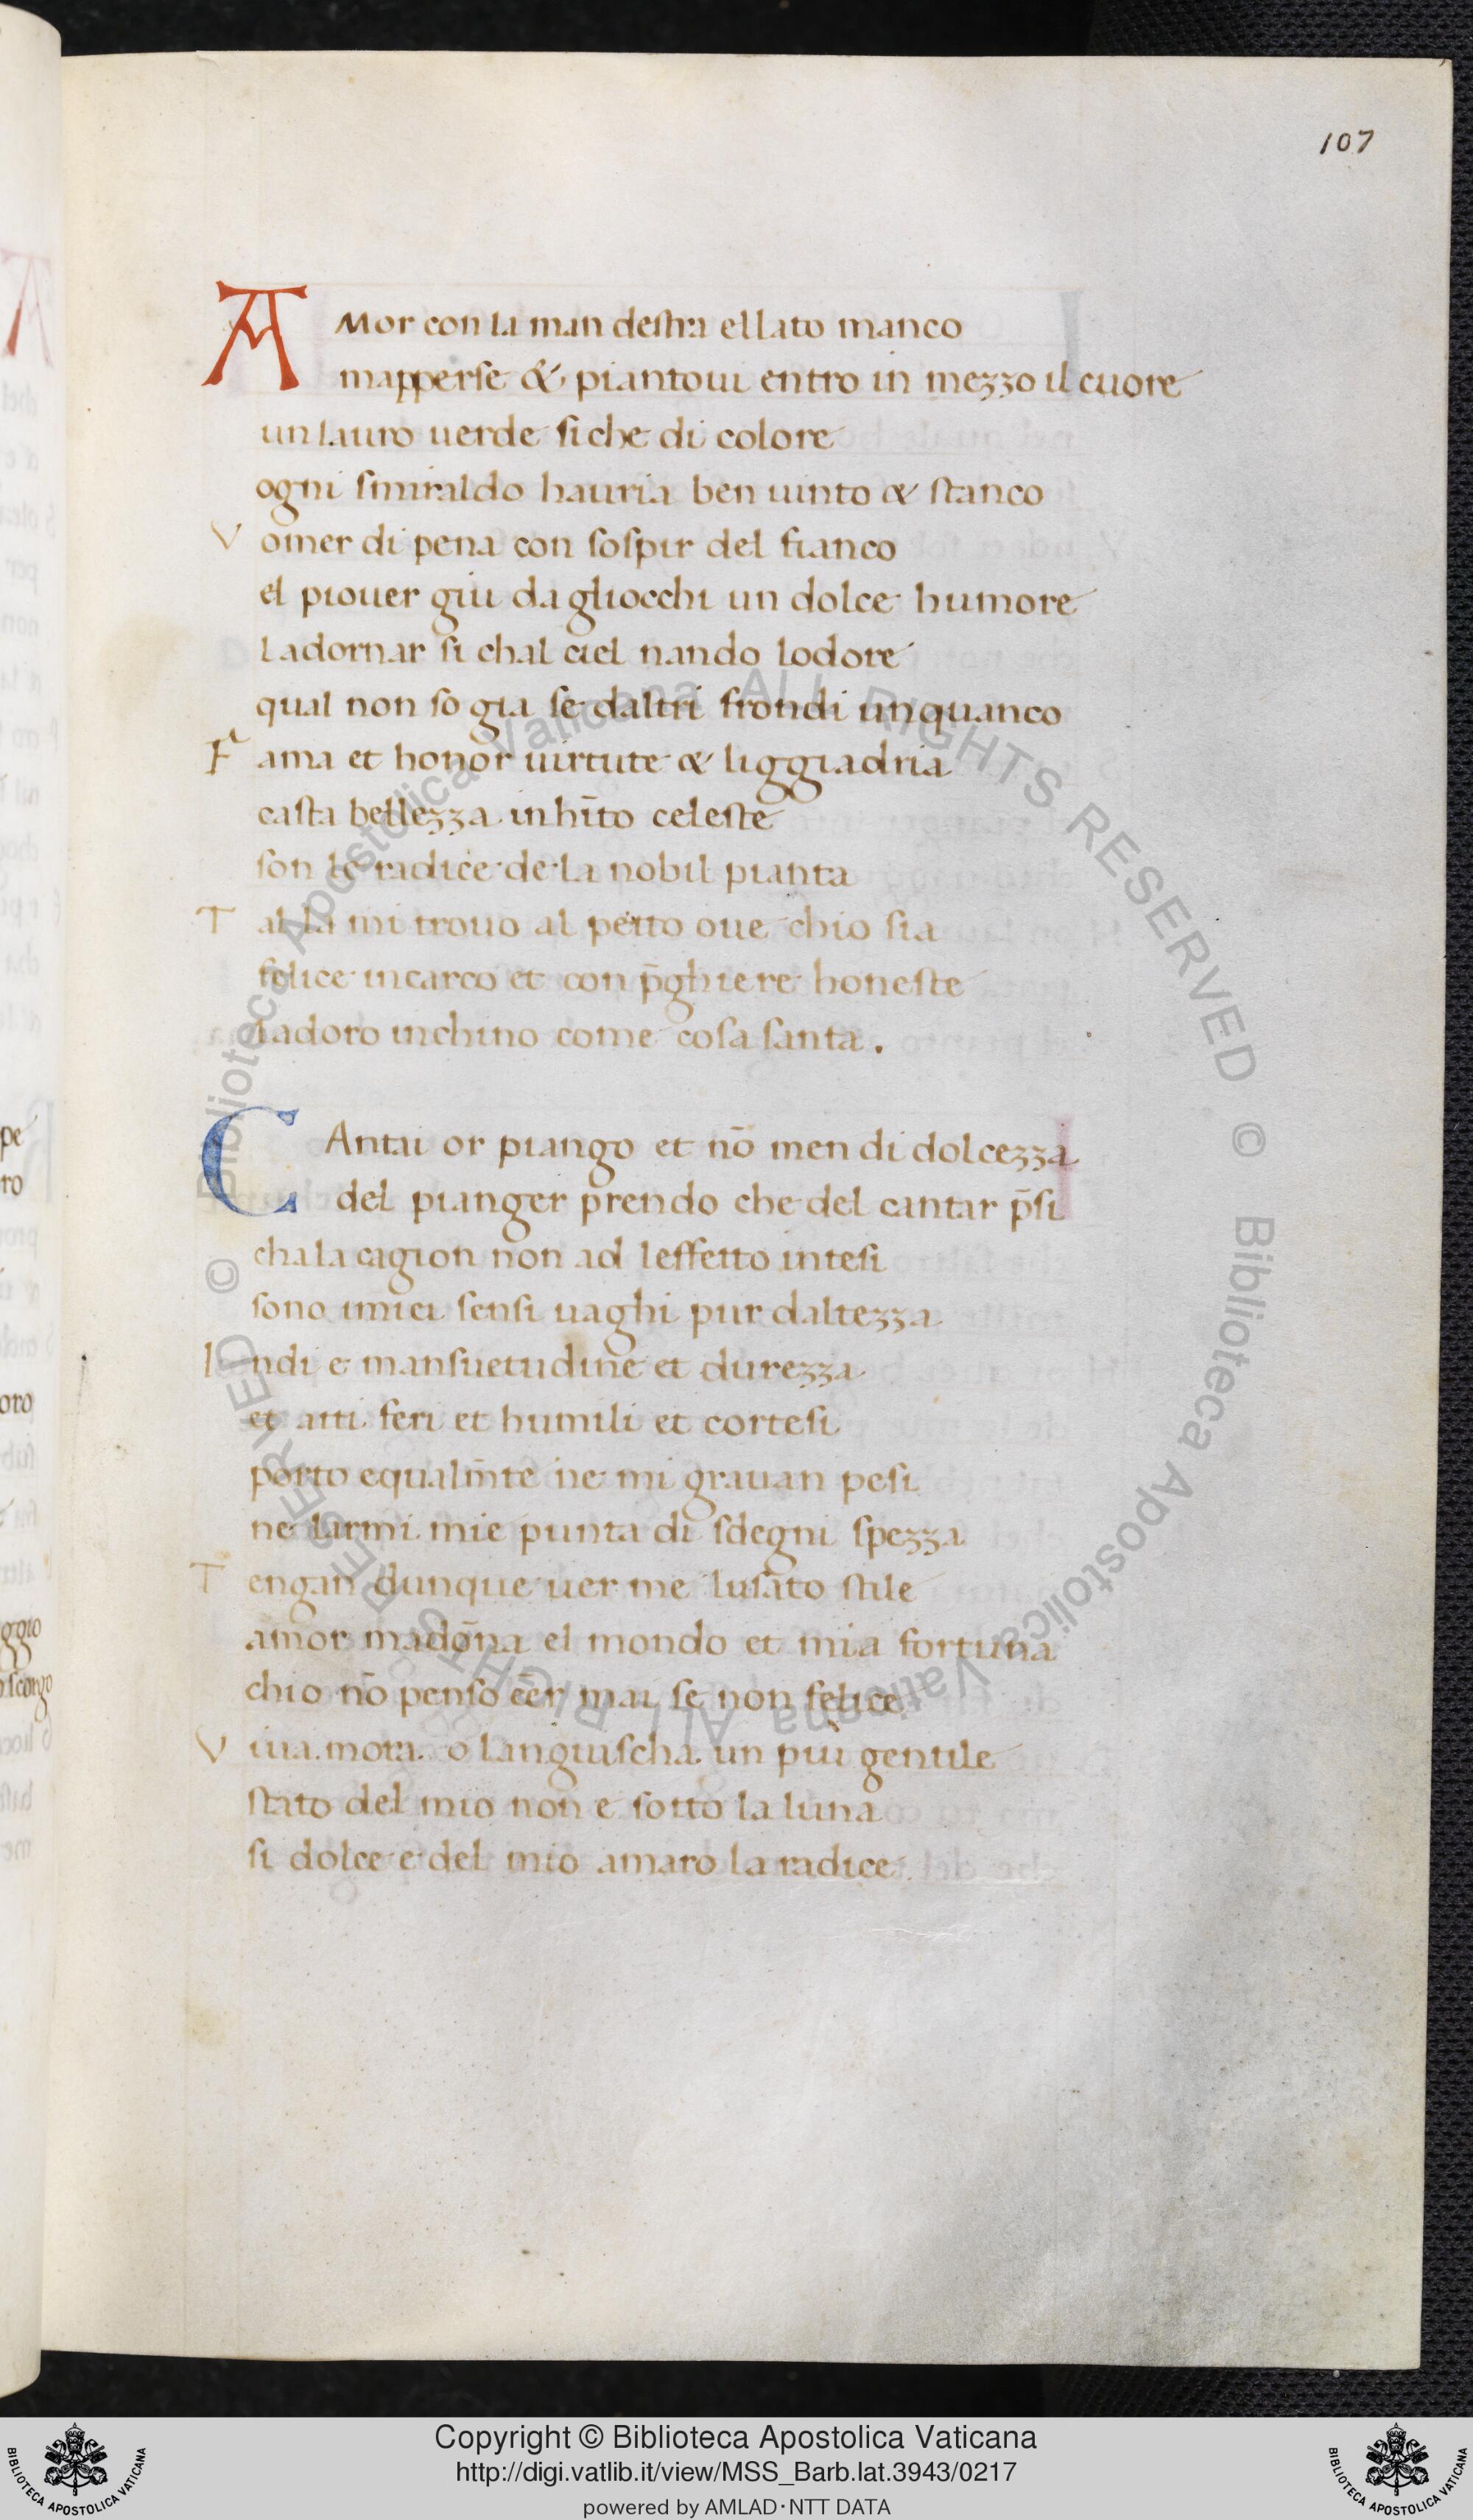 107
AMor con la man destra el lato manco
mapperse & piantoui entro in mezzo il cuore
un lauro uerde si che di colore
ogni smiraldo hauria ben uinto & stanco
Vomer di pena con sospir del fianco
el piouer giu da gliocchi un dolce humore
ladornar si chal ciel nando lodore
qual non so gia se daltri frondi unquanco
Fama et honor uirtute & liggiadria
casta bellezza in hīto celeste
son le radice de la nobil pianta
Tal la mi trouo al petto oue chio sia
felice incarco et con p̄ghiere honeste
ladoro inchino come cosa santa.
CAntai or piango et nō men di dolcezza
del pianger prendo che del cantar p̄si
cha la cagion non ad leffetto intesi
sono imiei sensi uaghi pur daltezza
Indi e mansuetudine et durezza
et atti feri et humili et cortesi
porto equalm̄te ne mi grauan pesi
ne larmi mie punta di sdegni spezza
Tengan dunque uer me lusato stile
amor madōna el mondo et mia fortuna
chio nō penso ēēr mai se non felice
Viua. mora. o languischa. un più gentile
stato del mio non e sotto la luna
si dolce e del mio amaro la radice.
© Biblioteca Apostolica Vaticana ALL RIGHTS RESERVED © Biblioteca Apostolica Vaticana ALL RIGHTS RESERVED
Copyright © Biblioteca Apostolica Vaticana
http://digi.vatlib.it/view/MSS_Barb.lat.3943/0217
powered by AMLAD·NTT DATA
BIBLIOTECA APOSTOLICA VATICANA
BIBLIOTECA APOSTOLICA VATICANA